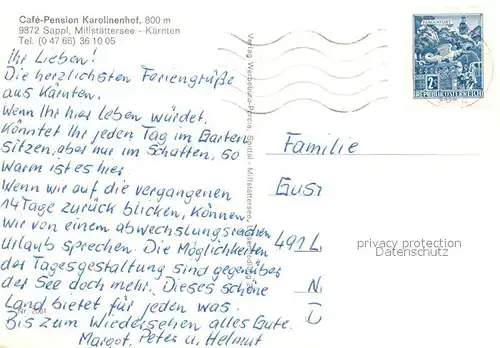 Café-Pension Karolinenhof, 800 m
9872 Sappl, Millstättersee - Kärnten
Tel. (0 47 66) 36 10 05
Ihr Lieben!
Die herzlichsten Feriengrüße
aus Kärnten.
Wenn Ihr hier leben würdet,
Könntet Ihr jeden Tag im Garten
sitzen, aber nur im Schatten, so
warm ist es hier.
Wenn wir auf die vergangenen
14 Tage zurück blicken, Können
wir von einem abwechslungsreichen
Urlaub sprechen. Die Möglichkeiten
der Tagesgestaltung sind gegenüber
der See doch mehr. Dieses schöne
Land bietet für jeden was.
Bis zum Wiedersehen alles Gute.
Margot, Peter u. Helmut
KLAGENFURT
2S
REPUBLIK ÖSTERREICH
Familie
Gust
491 L
N
I
privacy protection
Datenschutz